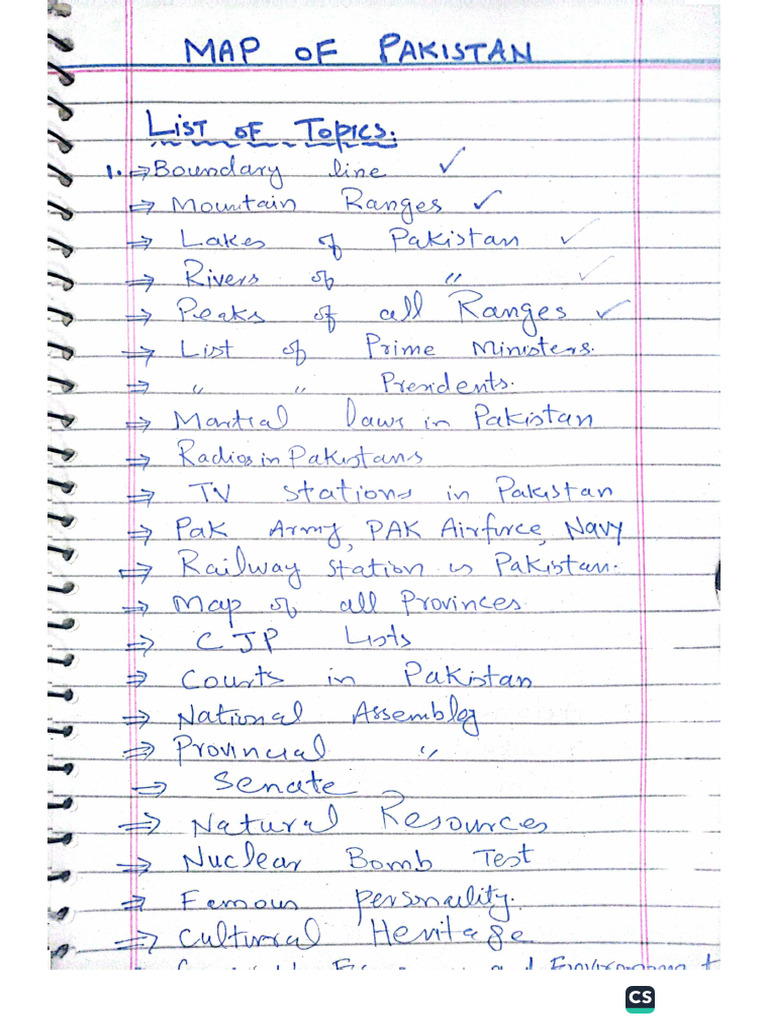 MAP OF PAKISTAN
LIST OF TOPICS.
1. ⇒ Boundary line ✓
⇒ Mountain Ranges ✓
⇒ Lakes of Pakistan ✓
⇒ Rivers of " ✓
⇒ Peaks of all Ranges ✓
⇒ List of Prime Ministers.
⇒ " " Presidents.
⇒ Martial laws in Pakistan
⇒ Radios in Pakistans
⇒ TV stations in Pakistan
⇒ Pak Army, PAK Airfurce, Navy
⇒ Railway station in Pakistan.
⇒ Map of all Provinces
⇒ CJP Lists
⇒ Courts in Pakistan
⇒ National Assembley
⇒ Provincial "
⇒ Senate
⇒ Natural Resources
⇒ Nuclear Bomb Test
⇒ Famous personality.
⇒ Cultural Heritage
and Environment
CS